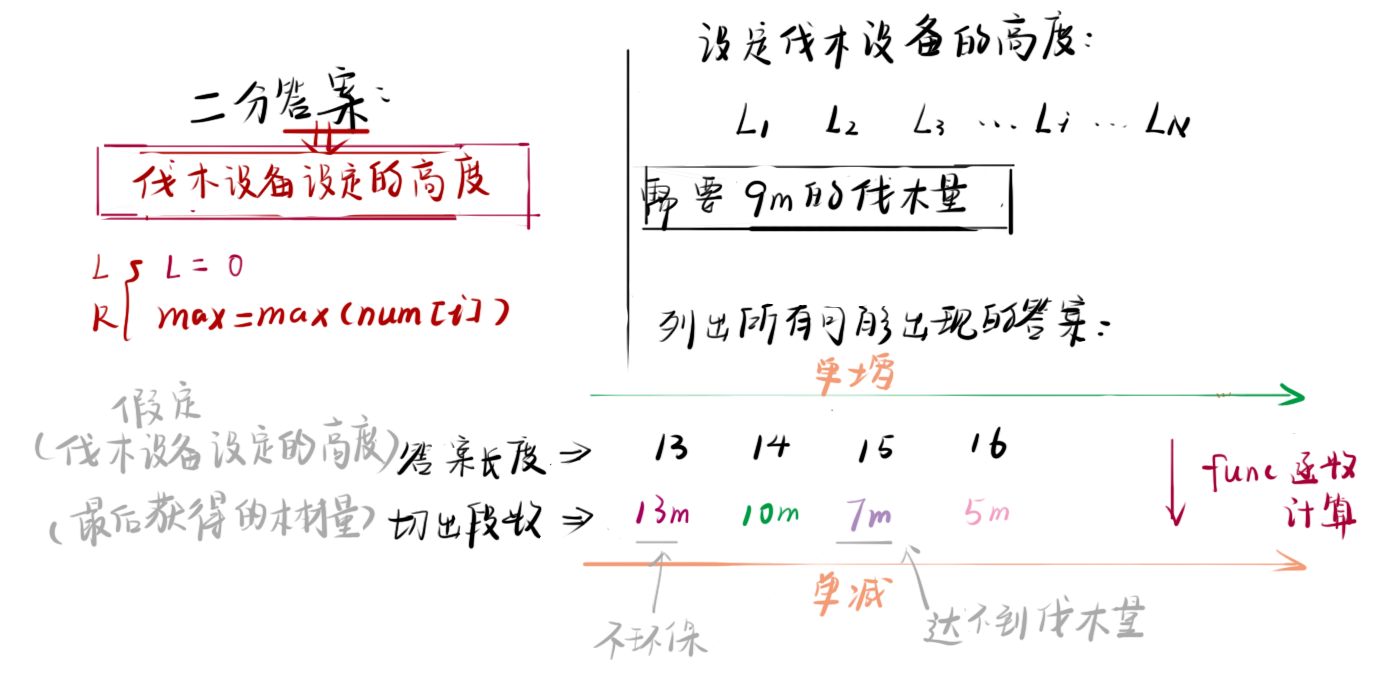 二分答案:
伐木设备设定的高度
L { L = 0
R max=max(num[i])
设定伐木设备的高度:
L1 L2 L3 ... Li ... LN
需要 9m的伐木量
列出所有可能出现的答案:
单增
假定
(伐木设备设定的高度) 答案长度 ⇒ 13 14 15 16
(最后获得的木材量) 切出段数 ⇒ 13m 10m 7m 5m
func 函数
计算
单减
不环保
达不到伐木量